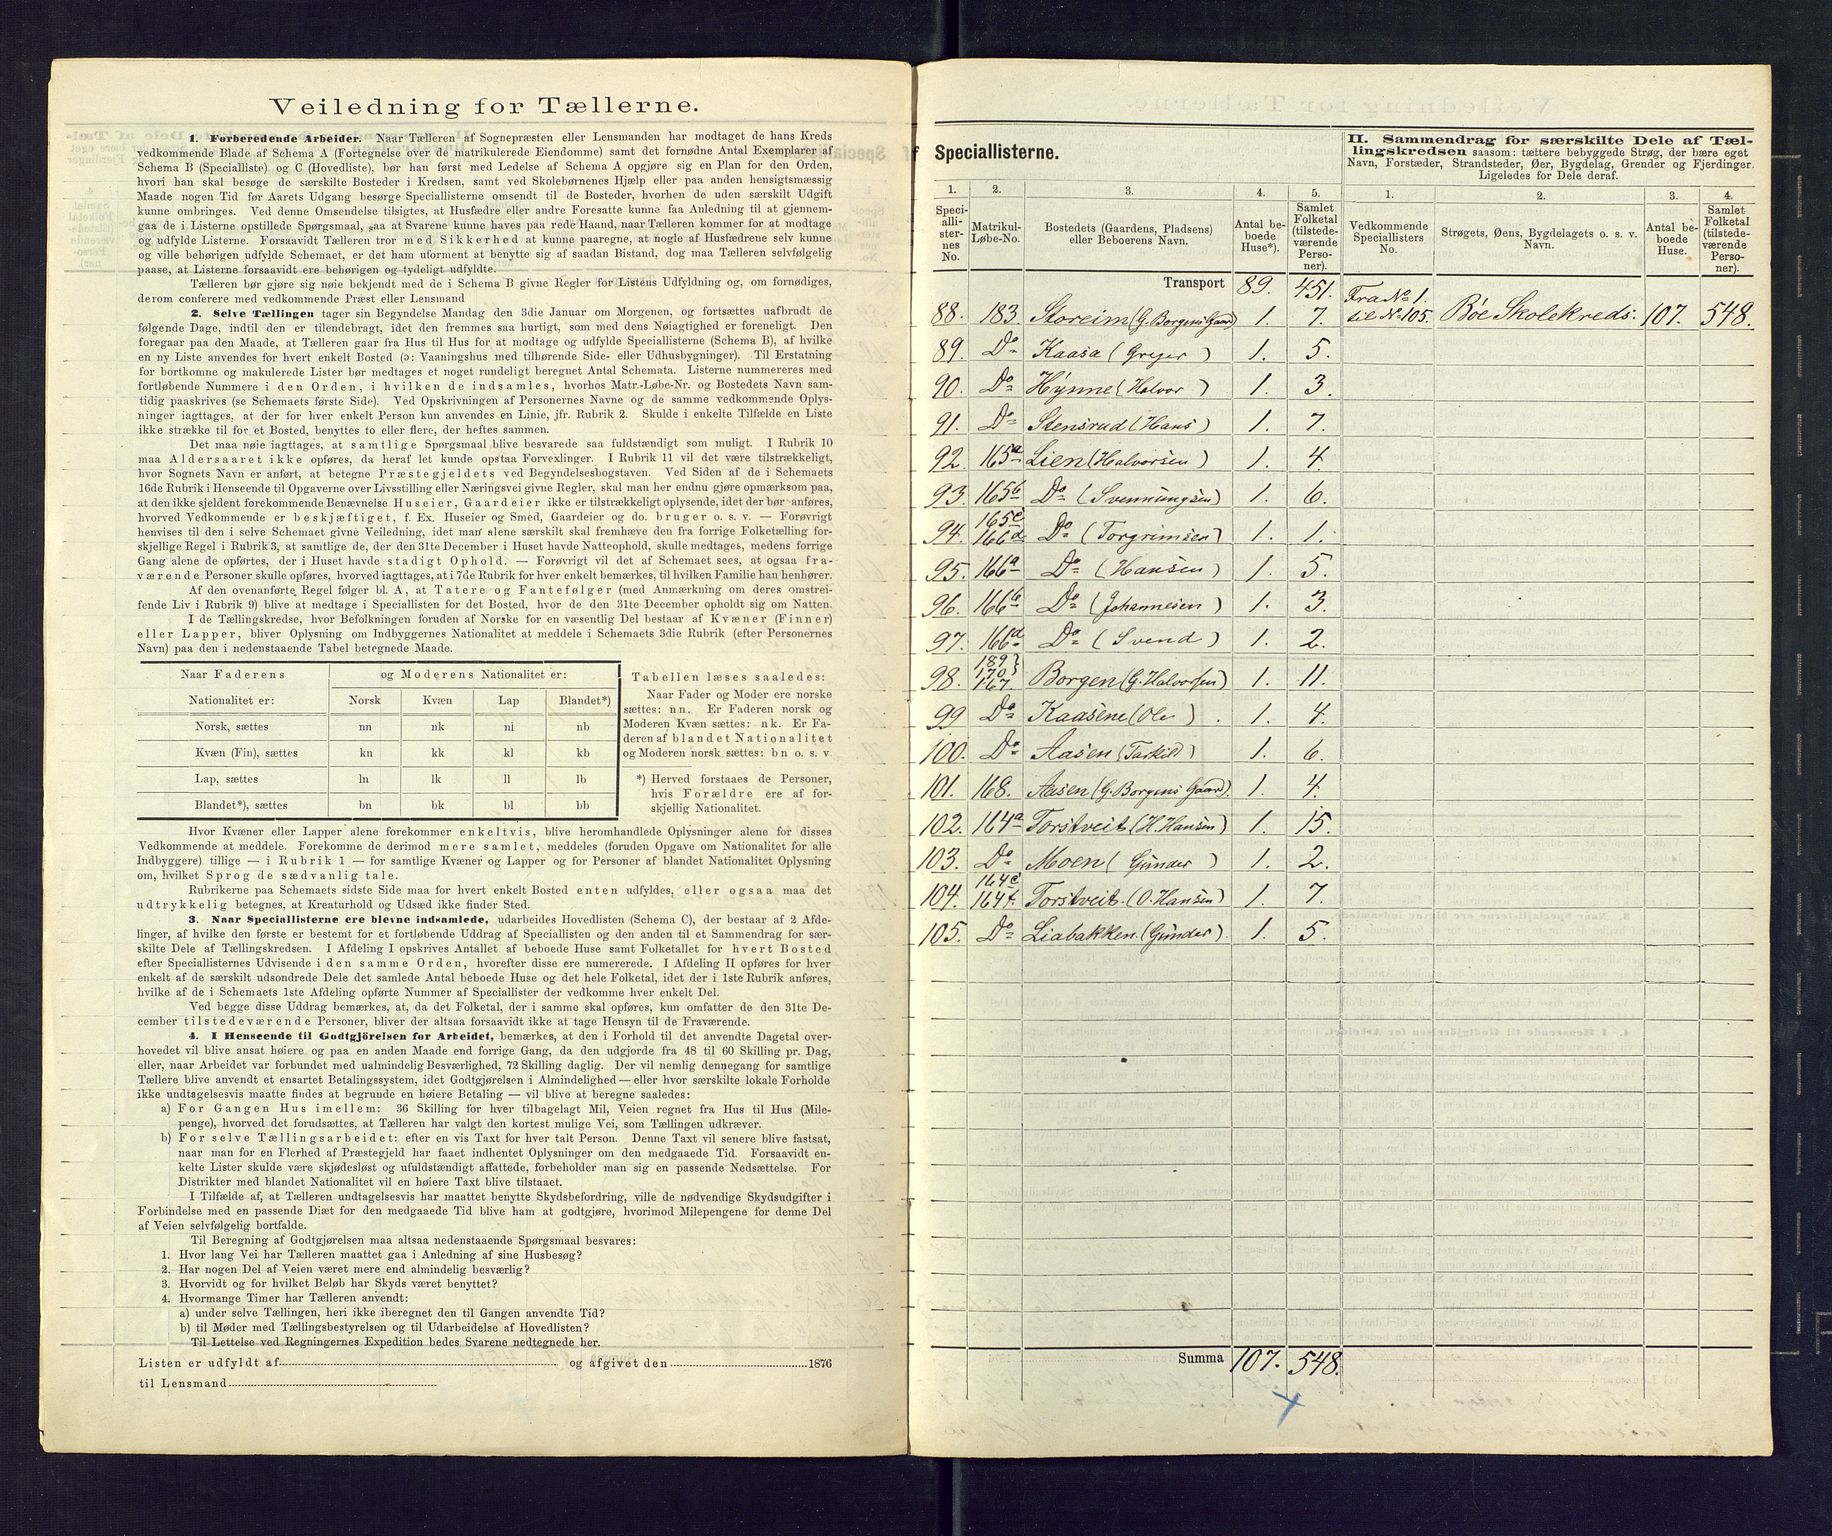 Veiledning for Tællerne.
1. Forberedende Arbeider. Naar Tælleren af Sognepræsten eller Lensmanden har modtaget de hans Kreds
vedkommende Blade af Schema A (Fortegnelse over de matrikulerede Eiendomme) samt det fornødne Antal Exemplarer af
Schema B (Specialliste) og C (Hovedliste), bør han først med Ledelse af Schema A opgjøre sig en Plan for den Orden,
hvori han skal besøge de særskilte Bosteder i Kredsen, samt ved Skolebørnenes Hjælp eller paa anden hensigtsmæssig
Maade nogen Tid før Aarets Udgang besørge Speciallisterne omsendt til de Bosteder, hvorhen de uden særskilt Udgift
kunne ombringes. Ved denne Omsendelse tilsigtes, at Husfædre eller andre Foresatte kunne faa Anledning til at gjennem-
gaa de i Listerne opstillede Spørgsmaal, saa at Svarene kunne haves paa rede Haand, naar Tælleren kommer for at modtage
og udfylde Listerne. Forsaavidt Tælleren tror med Sikkerhed at kunne paaregne, at nogle af Husfædrene selv kunne
og ville behørigen udfylde Schemaet, er det ham uforment at benytte sig af saadan Bistand, dog maa Tælleren selvfølgelig
paase, at Listerne forsaavidt ere behørigen og tydeligt udfyldte.
Tælleren bør gjøre sig nøie bekjendt med de i Schema B givne Regler for Listens Udfyldning og, om fornødiges,
derom conferere med vedkommende Præst eller Lensmand
2. Selve Tællingen tager sin Begyndelse Mandag den 3die Januar om Morgenen, og fortsættes uafbrudt de
følgende Dage, indtil den er tilendebragt, idet den fremmes saa hurtigt, som med dens Nøiagtighed er foreneligt. Den
foregaar paa den Maade, at Tælleren gaar fra Hus til Hus for at modtage og udfylde Speciallisterne (Schema B), af hvilke
en ny Liste anvendes for hvert enkelt Bosted (ɔ: Vaaningshus med tilhørende Side- eller Udhusbygninger). Til Erstatning
for bortkomne og makulerede Lister bør medtages et noget rundeligt beregnet Antal Schemata. Listerne nummereres med
fortløbende Nummere i den Orden, i hvilken de indsamles, hvorhos Matr.-Løbe-Nr. og Bostedets Navn sam-
tidig paaskrives (se Schemaets første Side). Ved Opskrivningen af Personernes Navne og de samme vedkommende Oplys-
ninger iagttages, at der for hver enkelt Person kun anvendes en Linie, jfr. Rubrik 2. Skulde i enkelte Tilfælde en Liste
ikke strække til for et Bosted, benyttes to eller flere, der heftes sammen.
Det maa nøie iagttages, at samtlige Spørgsmaal blive besvarede saa fuldstændigt som muligt. I Rubrik 10
maa Aldersaaret ikke opføres, da heraf let kunde opstaa Forvexlinger. I Rubrik 11 vil det være tilstrækkeligt,
hvor Sognets Navn er anført, at betegne Præstegjeldets ved Begyndelsesbogstaven. Ved Siden af de i Schemaets
16de Rubrik i Henseende til Opgaverne over Livsstilling eller Næringsvei givne Regler, skal man her endnu gjøre opmærksom paa,
at den ikke sjeldent forekommende Benævnelse Huseier, Gaardeier ikke er tilstrækkeligt oplysende, idet der bør anføres,
hvorved Vedkommende er beskjæftiget, f. Ex. Huseier og Smed, Gaardeier og do. bruger o. s. v. — Forøvrigt
henvises til den i selve Schemaet givne Veiledning, idet man alene særskilt skal fremhæve den fra forrige Folketælling for-
skjellige Regel i Rubrik 3, at samtlige de, der den 31te December i Huset havde Natteophold, skulle medtages, medens forrige
Gang alene de opførtes, der i Huset havde stadigt Ophold. — Forøvrigt vil det af Schemaet sees, at ogsaa fra-
værende Personer skulle opføres, hvorved iagttages, at i 7de Rubrik for hver enkelt bemærkes, til hvilken Familie han henhører.
Af den ovenanførte Regel følger bl. A, at Tatere og Fantefølger (med Anmærkning om deres omstrei-
fende Liv i Rubrik 9) blive at medtage i Speciallisten for det Bosted, hvor de den 31te December opholdt sig om Natten.
I de Tællingskredse, hvor Befolkningen foruden af Norske for en væsentlig Del bestaar af Kvæner (Finner)
eller Lapper, bliver Oplysning om Indbyggernes Nationalitet at meddele i Schemaets 3die Rubrik (efter Personernes
Navn) paa den i nedenstaaende Tabel betegnede Maade.
Naar Faderens og Moderens Nationalitet er:
Nationalitet er: Norsk Kvæn Lap Blandet*)
Norsk, sættes nn nk nl nb
Kvæn (Fin), sættes kn kk kl kb
Lap, sættes ln lk ll lb
Blandet*), sættes bn bk bl bb
Tabellen læses saaledes:
Naar Fader og Moder ere norske
sættes: nn. Er Faderen norsk og
Moderen Kvæn sættes: nk. Er Fa-
deren af blandet Nationalitet
og Moderen norsk sættes: bn o. s. v.
*) Herved forstaaes de Personer,
hvis Forældre ere af for-
skjellig Nationalitet.
Hvor Kvæner eller Lapper alene forekommer enkeltvis, blive heromhandlede Oplysninger alene for disses
Vedkommende at meddele. Forekomme de derimod mere samlet, meddeles (foruden Opgave om Nationalitet for alle
Indbyggere) tillige — i Rubrik 1 — for samtlige Kvæner og Lapper og for Personer af blandet Nationalitet Oplysning
om, hvilket Sprog de sædvanlig tale.
Rubrikerne paa Schemaets sidste Side maa for hvert enkelt Bosted enten udfyldes, eller ogsaa maa det
udtrykkelig betegnes, at Kreaturhold og Udsæd ikke finder Sted.
3. Naar Speciallisterne ere blevne indsamlede, udarbeides Hovedlisten (Schema C), der bestaar af 2 Afde-
linger, af hvilke den første er bestemt for et fortløbende Uddrag af Speciallisten og den anden til et Sammendrag for sær-
skilte Dele af Tællingskredsen. I Afdeling I opskrives Antallet af beboede Huse samt Folketallet for hvert Bosted
efter Speciallisternes Udvisende i den samme Orden, hvorefter disse ere numererede. I Afdeling II opføres for hver
enkelt af de særskilt udsondrede Dele det samlede Antal beboede Huse og det hele Folketal, idet der i 1ste Rubrik anføres,
hvilke af de i Schemaets 1ste Afdeling opførte Nummer af Speciallister der vedkomme hver enkelt Del.
Ved begge disse Uddrag bemærkes, at, da det Folketal, der i samme skal opføres, kun omfatter de den 31te De-
cember tilstedeværende Personer, bliver der altsaa forsaavidt ikke at tage Hensyn til de Fraværende.
4. I Henseende til Godtgjörelsen for Arbeidet, bemærkes, at den i Forhold til det anvendte Dagetal over-
hovedet vil blive ansat høiere og paa en anden Maade end forrige Gang, da den udgjorde fra 48 til 60 Skilling pr. Dag,
eller, naar Arbeidet var forbundet med ualmindelig Besværlighed, 72 Skilling daglig. Der vil nemlig dennegang for samtlige
Tællere blive anvendt et ensartet Betalingssystem, idet Godtgjørelsen i Almindelighed — eller hvor særskilte lokale Forholde
ikke undtagelsesvis maatte findes at begrunde en høiere Betaling — vil blive at beregne saaledes:
a) For Gangen Hus imellem: 36 Skilling for hver tilbagelagt Mil, Veien regnet fra Hus til Hus (Mile-
penge), hvorved det forudsættes, at Tælleren har valgt den kortest mulige Vei, som Tællingen udkræver.
b) For selve Tællingsarbeidet: efter en vis Taxt for hver talt Person. Denne Taxt vil senere blive fastsat,
naar man for en Flerhed af Præstegjeld har faaet indhentet Oplysninger om den medgaaede Tid. Forsaavidt en-
kelte Lister skulde være skjødesløst og ufuldstændigt affattede, forbeholder man sig en passende Nedsættelse. For
Distrikter med blandet Nationalitet vil en høiere Taxt blive tilstaaet.
I Tilfælde af, at Tælleren undtagelsesvis har maattet benytte Skydsbefordring, ville de nødvendige Skydsudgifter i
Forbindelse med en passende Diæt for den medgaaede Tid blive ham at godtgjøre, hvorimod Milepengene for denne Del
af Veien selvfølgelig bortfalde.
Til Beregning af Godtgjørelsen maa altsaa nedenstaaende Spørgsmaal besvares:
1. Hvor lang Vei har Tælleren maattet gaa i Anledning af sine Husbesøg?
2. Har nogen Del af Veien været mere end almindelig besværlig?
3. Hvorvidt og for hvilket Beløb har Skyds været benyttet?
4. Hvormange Timer har Tælleren anvendt:
a) under selve Tællingen, heri ikke iberegnet den til Gangen anvendte Tid?
b) til Møder med Tællingsbestyrelsen og til Udarbeidelse af Hovedlisten?
Til Lettelse ved Regningernes Expedition bedes Svarene nedtegnede her.
Listen er udfyldt af og afgivet den 1876
til Lensmand
f Speciallisterne.
1. 2. 3. 4. 5.
Speci-alli-sternes No. Matrikul-Løbe-No. Bostedets (Gaardens, Pladsens) eller Beboerens Navn. Antal be-boede Huse*). Samlet Folketal (tilstede-værende Perso-ner).
Transport 89. 451.
88. 183. Storeim (G. Borgens Gaard) 1. 7.
89. Do Kaasa (Greger) 1. 5.
90. Do Hynne (Halvor) 1. 3.
91. Do Stensrud (Hans) 1. 7.
92. 165a Lien (Halvorsen) 1. 4.
93. 165b Do (Svennungsen) 1. 6.
94. 165c 166d Do (Torgrimsen) 1. 1.
95. 166a Do (Hansen) 1. 5.
96. 166b Do (Johannesen) 1. 3.
97. 166d Do (Svend) 1. 2.
98. 189 170 167. Borgen (G. Halvorsen) 1. 11.
99 Do Kaasene (Ole) 1. 4.
100. Do Aasen (Tarkild) 1. 6.
101. 168. Aasen (G. Borgens Gaard). 1. 4.
102. 164a Torstveit (H. Hansen) 1. 15.
103. Do Moen (Gunder) 1. 2.
104. 164c 164f. Torstveit. (O. Hansen) 1. 7.
105. Do Liabakken. (Gunder). 1. 5.
Summa 107. 548.
II. Sammendrag for særskilte Dele af Tæl-
lingskredsen saasom: tættere bebyggede Strøg, der bære eget
Navn, Forstæder, Strandsteder, Øer, Bygdelag, Grender og Fjerdinger.
Ligeledes for Dele deraf.
1. 2. 3. 4.
Vedkommende Speciallisters No. Strøgets, Øens, Bygdelagets o. s. v. Navn. Antal be-boede Huse. Samlet Folketal (tilstede-værende Perso-ner).
Fra No 1.
til No 105. Bøe Skolekreds. 107. 548.